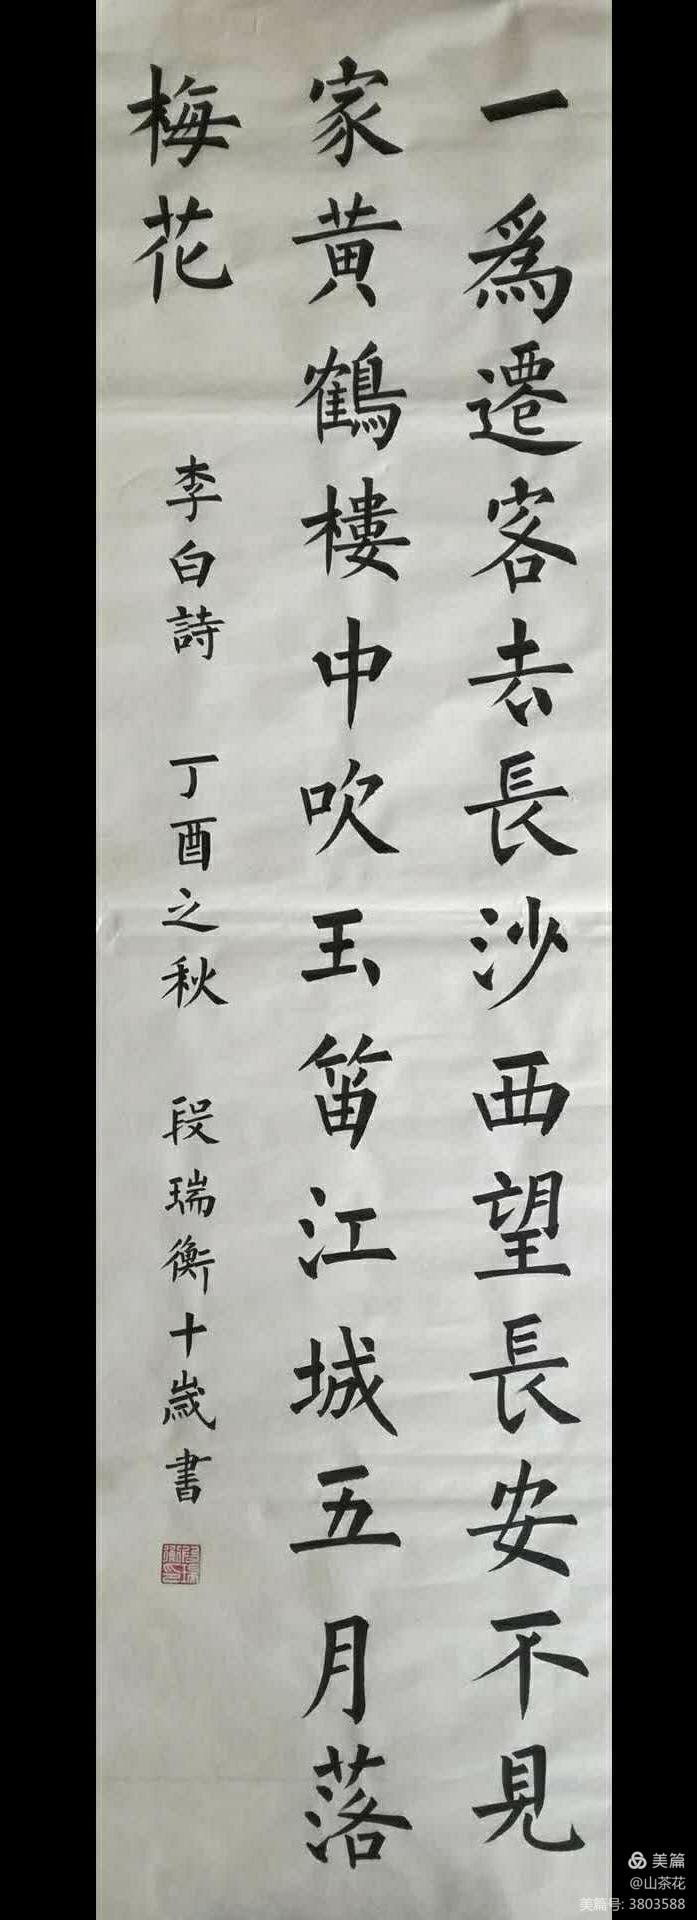 一爲遷客去長沙西望長安不見
家黄鶴樓中吹玉笛江城五月落
梅花
李白詩 丁酉之秋 段瑞衡十歲書
美篇
@山茶花
美篇号: 3803588